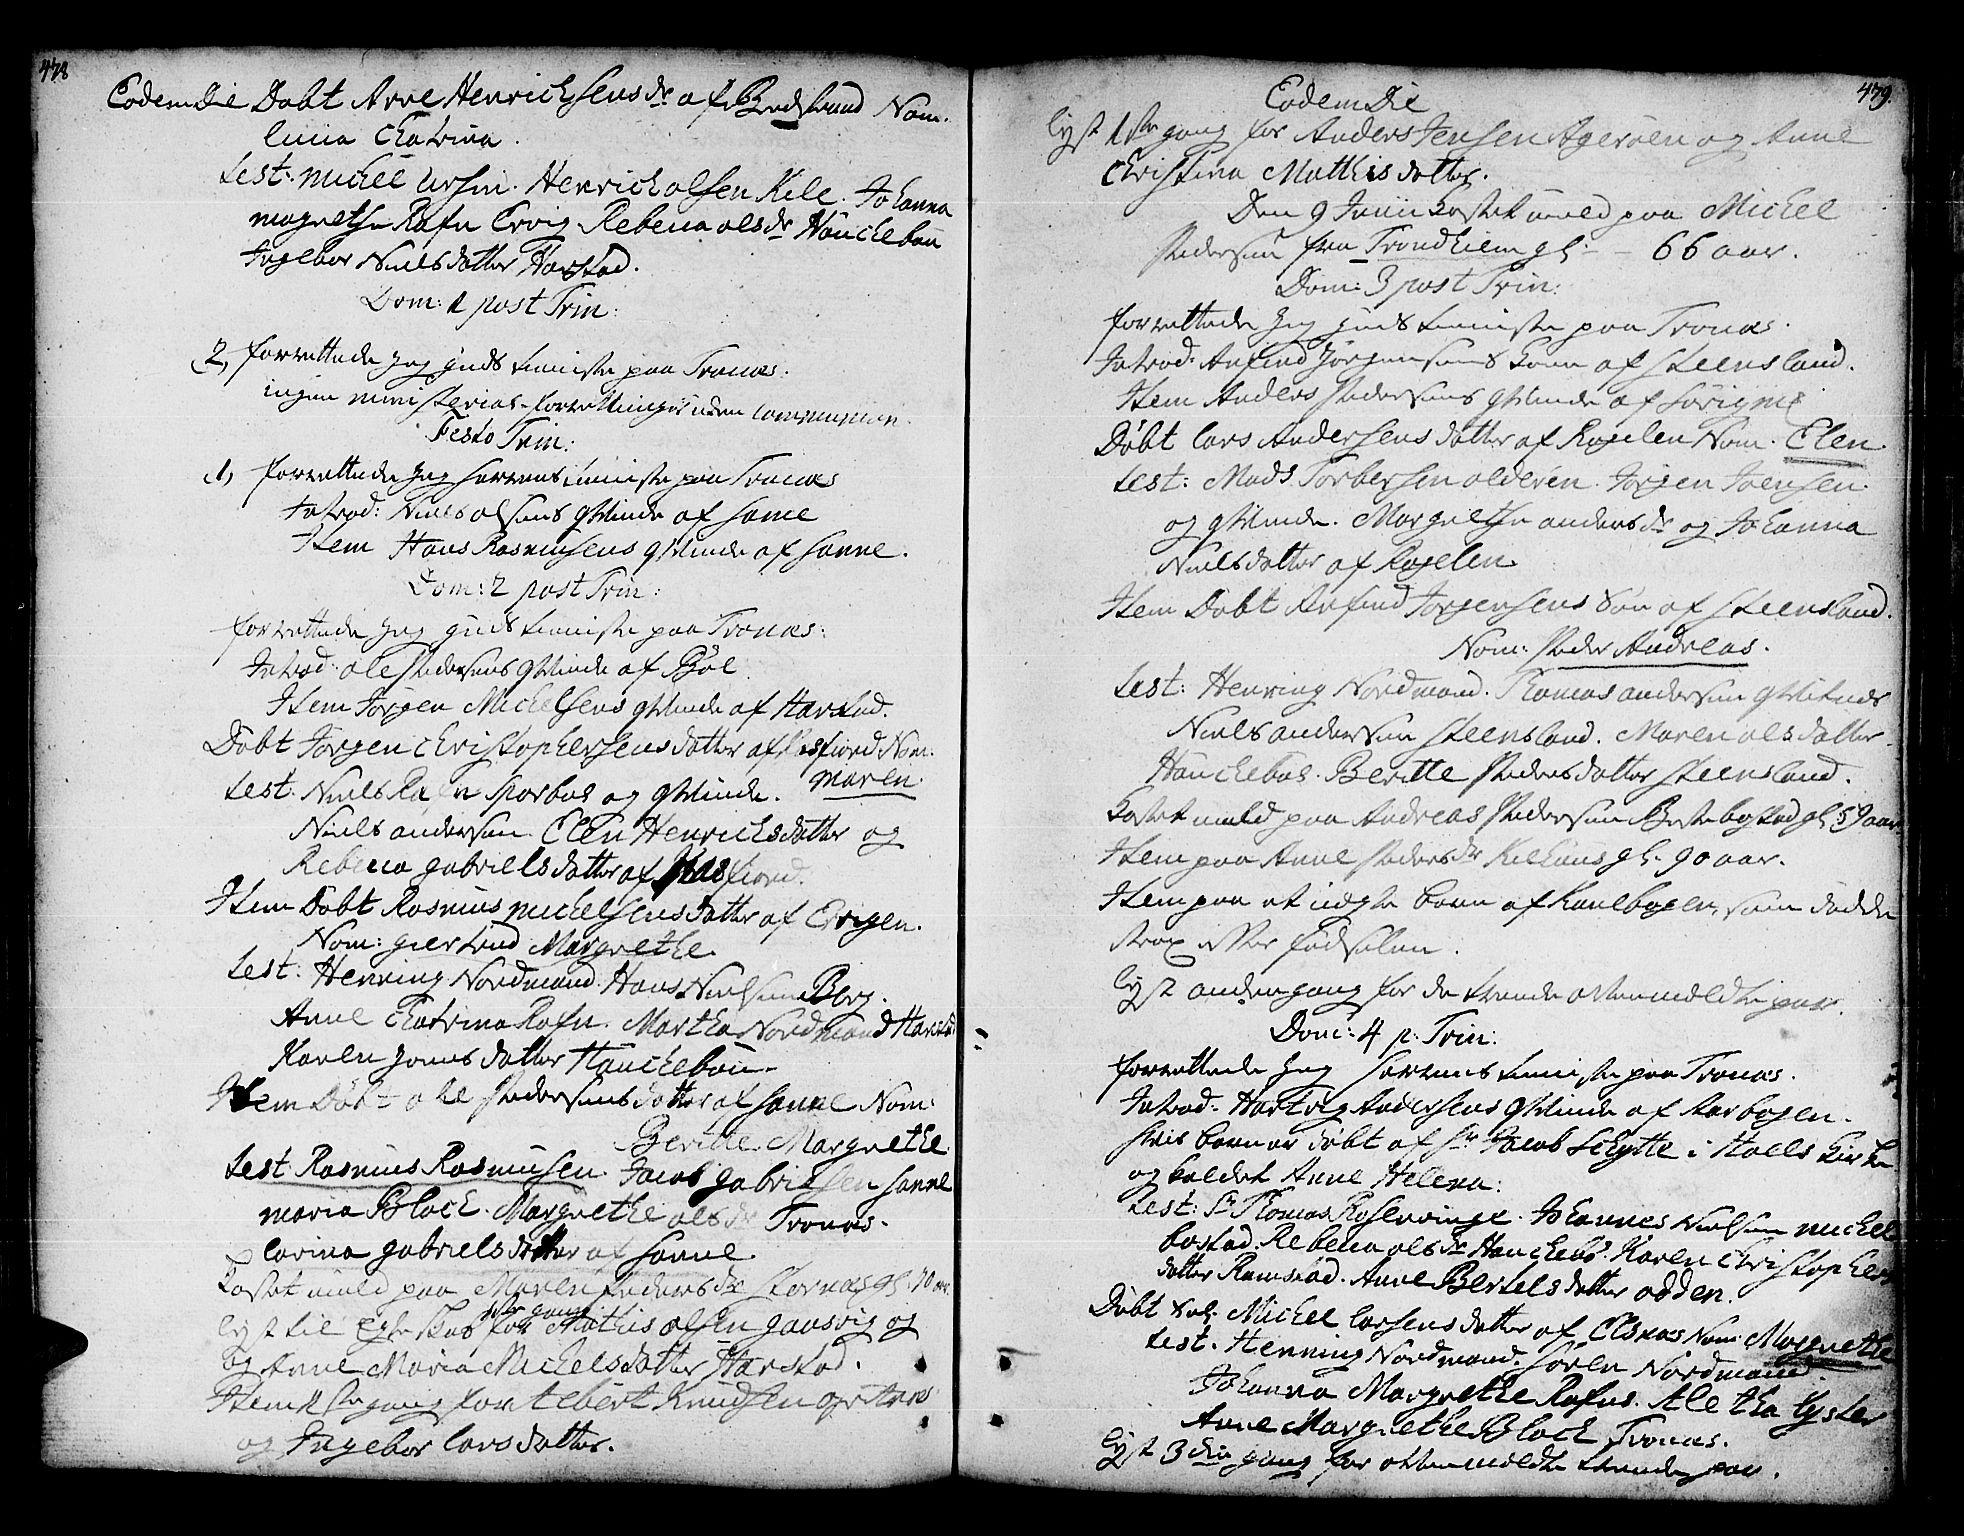 478
Eodem Die Döbt Arne Henrichsens dr af Nom.
lucia Chatrina.
Test. Michel Ursin. Henrich olsen Kile. Johanna
magrethe Rafn Ervig Rebecca olsdr Hauckeböu
Ingebor Nielsdatter Harstad.
Dom: 1 post Trin:
2, forrettede Jeg guds tieniste paa Tronæs.
ingen ministerial-forretninger uden communion.
Festo Trin:
1, forrettede Jeg Herrens tieniste paa Tronæs
Introd: Niels olsens qvinde af Same
Item Hans Rasmusens qvinde af Sanne.
Dom: 2 post Trin:
forrettede Jeg guds tieniste paa Tronæs:
Introd: ole Pedersens qvinde af Böl
Item Jörgen Michelsens qvinde af Harstad.
Döbt Jörgen Christophersens datter af Kasfiord Nom:
maren.
Test: Niels Rafn Sporbøe og qvinde.
Niels andersen. Elen Henrichsdatter og
Rebecca gabrielsdatter af Kasfiord.
Item Döbt Rasmus michelsens datter af Ervigen.
Nom: giertrud Margrethe
Test: Henning Nordmand. Hans Nielsen Berg.
Anne Chatrina Rafn. Martha Nordmand Harstad
Karen Jonsdatter Hauckeböu.
Item Döbt ole Pedersens datter af Sanne Nom:
Beritte Margrethe
Test: Rasmus Rasmusen. Jacob gabrielsen Sanne
maria Block. Margrethe olsdr Tronæs.
Carina gabrielsdatter af Sanne.
Kastet muld paa Maren Pedersdr Stornæs gl: 70 aar.
lyst til Egteskab 1ste gang for Mathis olsen gaasvig og
og Anne Maria Michelsdatter Harstad.
Item 1ste gang for Elbert Knudsen
og Ingebor larsdatter.
479.
Eodem Die
lyst 1ste gang for Anders Jensen Ageröen og Anne
Christina Matthisdatter.
Den 9 Junii kastet muld paa Michel
Pedersen fra Trondhiem gl: - 66 aar.
Dom: 3 post Trin:
forrettede Jeg guds tieniste paa Tronæs.
Introd: Anfind Jörgensens kone af Steensland.
Item Anders Pedersens qvinde af
Döbt lars Andersens datter af Rogelen Nom. Elen.
Test: Mads Torbersen olderen. Jörgen Joensen.
og qvinde. Margrethe andersdr og Johanna
Nielsdatter af Rogelen
Item Döbt Anfind Jörgensens Sön af Steensland.
Nom: Peder Andreas.
Test: Henning Nordmand. Thomas andersen
Niels andersen Steensland. Maren olsdatter
Hauckeböe. Beritte Pedersdatter Steensland.
Kastet muld paa Andreas Pedersen gl 59 aar
Item paa Anne Pedersdr Kilhuus gl. 90 aar.
Item paa et uægte barn af Kanebogen, som dödde
strax efter födselen.
lyst anden gang for de tvende ovenmeldte par.
Dom: 4 p: Trin:
forrettede Jeg Herrens tieniste paa Tronæs.
Introd: Hartvig Andersens qvinde af Aarbogen.
hvis barn er döbt af Hr Jacob Schytte i Hoels kirke
og kaldet Anne Helena:
Test: Sr Thomas Rosenvinge. Johannes Nielsen michel
bostad. Rebecca olsdr Hauckebö. Karen Christophers
datter Ramstad. Anne Bertelsdatter odden.
Döbt Sal: Michel larsens datter af Elsnæs Nom: Margrethe
Test. Henning Nordmand. Sören Nordmand.
Johanna Margrethe Rafns. Aletha lyster
Anne Margrethe Block Tronæs.
lyst 3die gang for ovenmeldte tvende par.